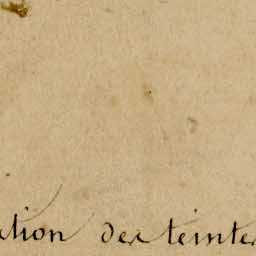 ation des teintes